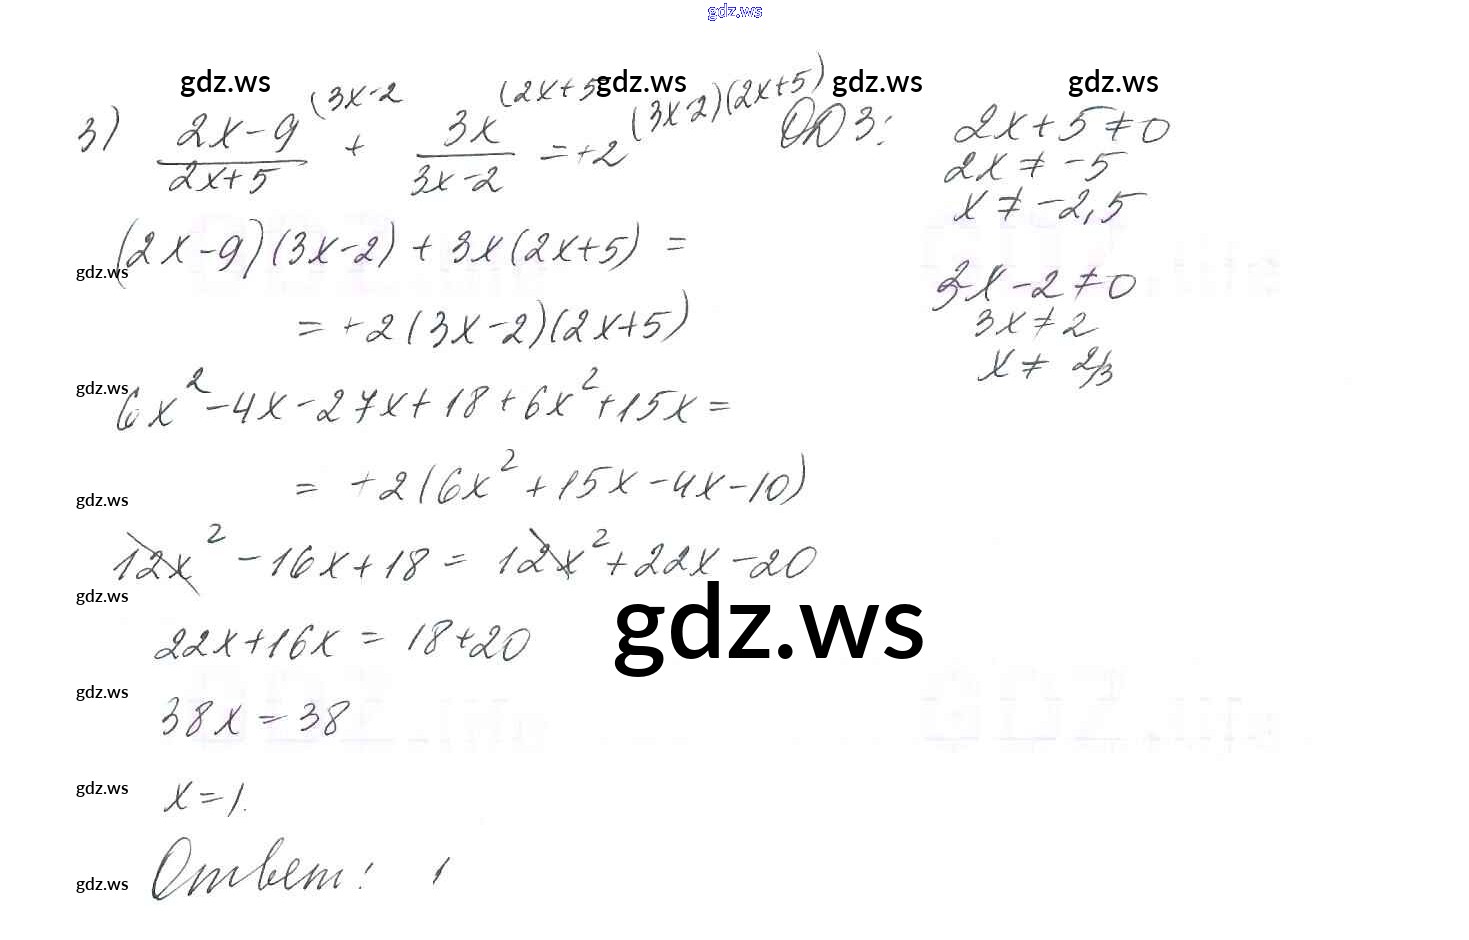 gdz.ws
gdz.ws gdz.ws gdz.ws gdz.ws
3) (2x-9)/(2x+5) (3x-2 + 3x/(3x-2) (2x+5 = +2 (3x-2)(2x+5)
ОДЗ: 2x+5≠0
2x≠-5
x≠-2,5
3x-2≠0
3x≠2
x≠2/3
(2x-9)(3x-2)+3x(2x+5)=
gdz.ws
=+2(3x-2)(2x+5)
gdz.ws
6x²-4x-27x+18+6x²+15x=
=+2(6x²+15x-4x-10)
gdz.ws
12x²-16x+18=12x²+22x-20
gdz.ws
gdz.ws
22x+16x=18+20
gdz.ws
38x=38
gdz.ws
x=1.
gdz.ws
Ответ: 1